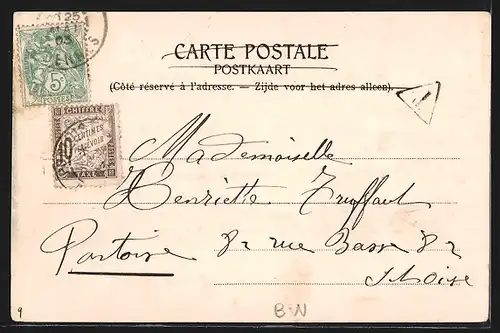 25
03
CARTE POSTALE
POSTKAART
(Côté réservé à l'adresse. — Zijde voor het adres alleen).
5c
POSTES
T
CHIFFRE
10 CENTIMES
À PERCEVOIR
TAXE
Mademoiselle
Henriette Truffaut
Pontoise 82 rue Basse 82
S & Oise
9
B-N